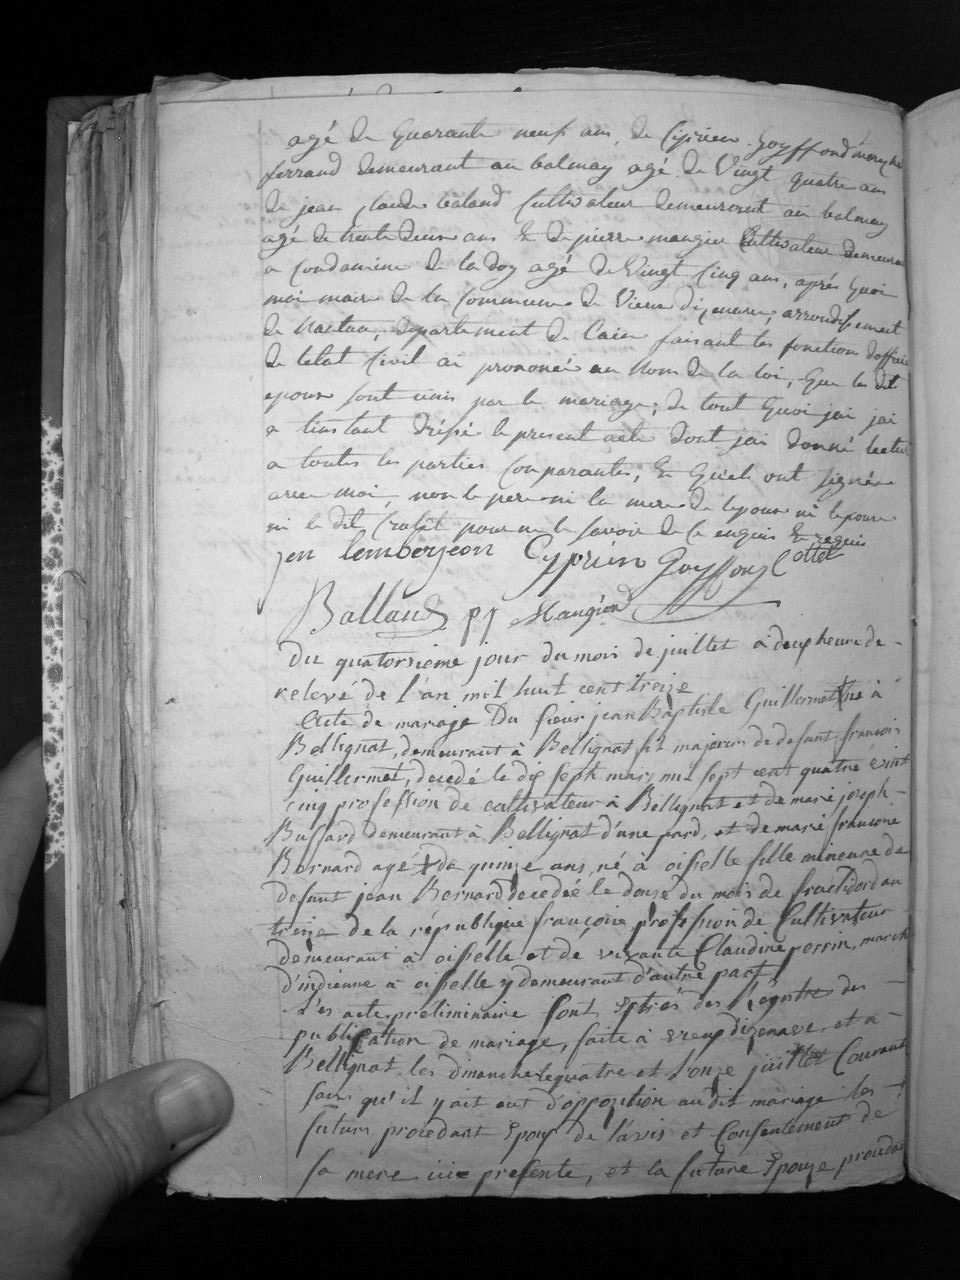 agé de quarante neuf ans, de Ciprien Goyffond marechal
ferrand demeurant au balmay agé de Vingt quatre ans
de jean Claude baland Cultivateur demeurent au balmay
agé de trente deux ans & de pierre mangier Cultivateur demeurant
a Condamine de la doy agé de Vingt Cinq ans, aprés quoi
moi maire de la Commune de Vieux dizenave, arrondissement
de Nantua, departement de l'ain faisant les fonctions d'officier
de letat Civil ai prononcé au Nom de la loi, que les dit
epoux sont unis par le mariage; de tout quoi jai jai
a linstant drésé le present acte dont jai donné lecture
a toutes les parties Comparantes, & qu'els ont signés
avec moi, non le pere ni la mere de lepoux ni lepoux
ni le dit pour ne le savoir de Ce enquis & requis
jen lemberjeon Cyprien Goyffong Cottet
Balland py Mangier
Du quatorsieme jour du mois de juillet à deux heure de-
relevé de l'an mil huit cent treize
Acte de mariage Du sieur jean Baptiste Guillermet né à
Bellignat, demeurant à Bellignat fil majeurs de defunt francois
Guillermet, decedé le dix sept mars mil sept cent quatre vint
cinq profession de cultivateur à Bellignat et de marie joseph-
Bussard demeurant à Bellignat d'une pard, et de marie francoise
Bernard age de quinze ans, né à oisselle fille mineure de
defunt jean Bernard decedée le douze du mois de fructidord an
treize de la république francoise profession de Cultivateur
demeurant à oisselle et de vivante Claudine perrin, march
d'indienne à oisselle y demeurant d'autre part
Les acte préliminaire sont Extrés des Registre des-
publication de mariage, faite à vieux dizenave, et à-
Bellignat les dimanche le quatre et l'onze juillet Courant
sans qu'il y ait eut d'oppozition au dit mariage les
futurs procedant Epoux de l'avis et Consentement de
sa mere ici presente, et la future Epouze procedant